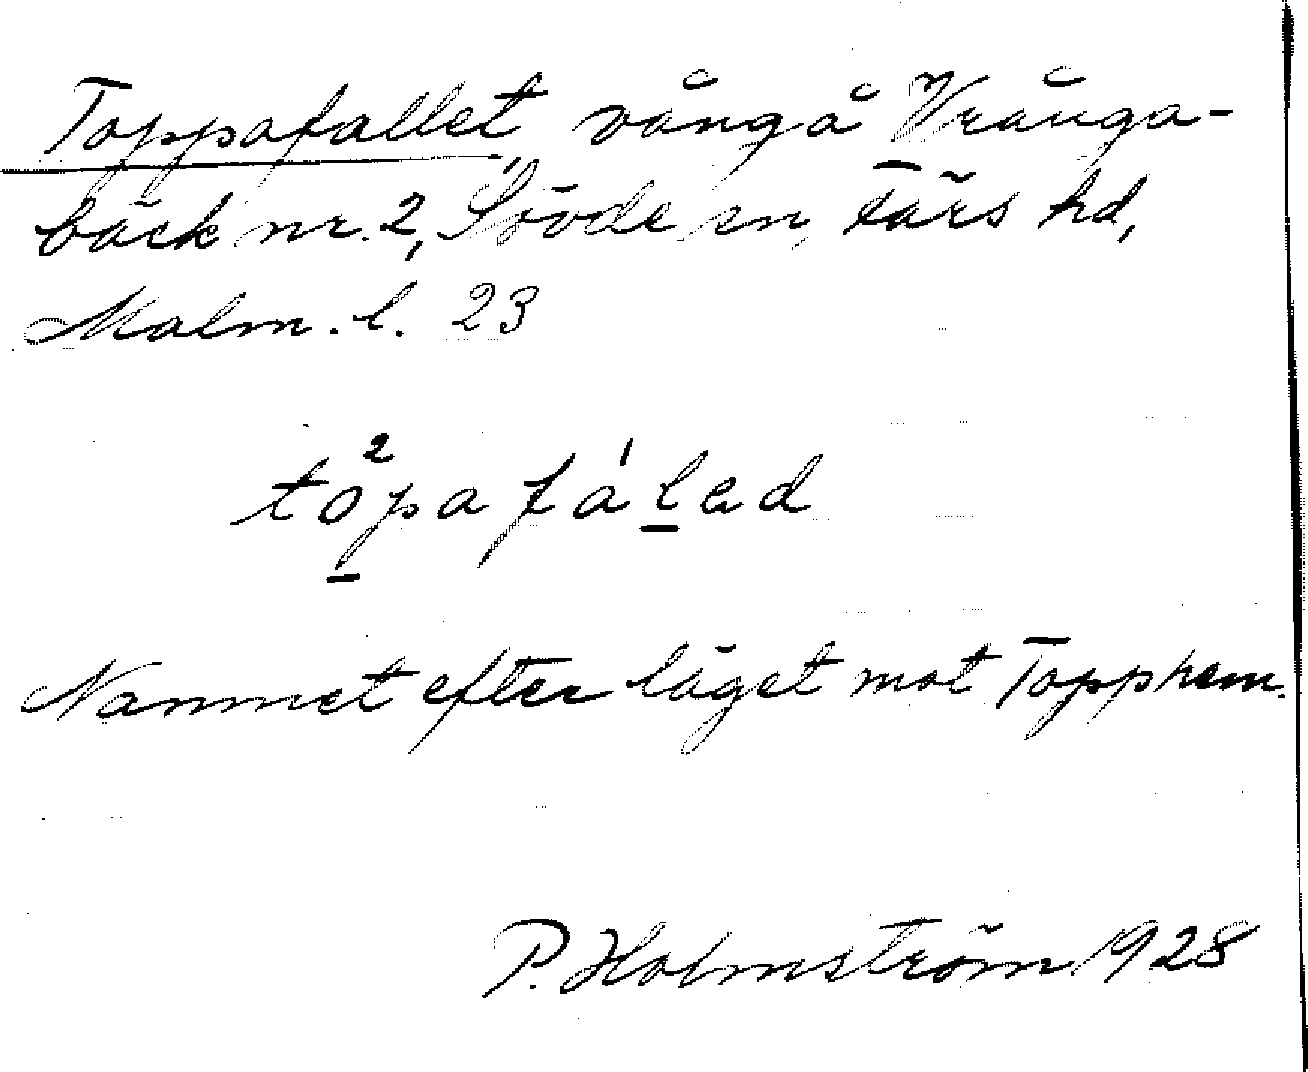 Toppafallet, vång å Vrånga-
bäck nr. 2, Sövde sn, Färs hd,
Malm. l. 23
tò²pafá'led
Namnet efter läget mot Topphem.
P. Holmström 1928